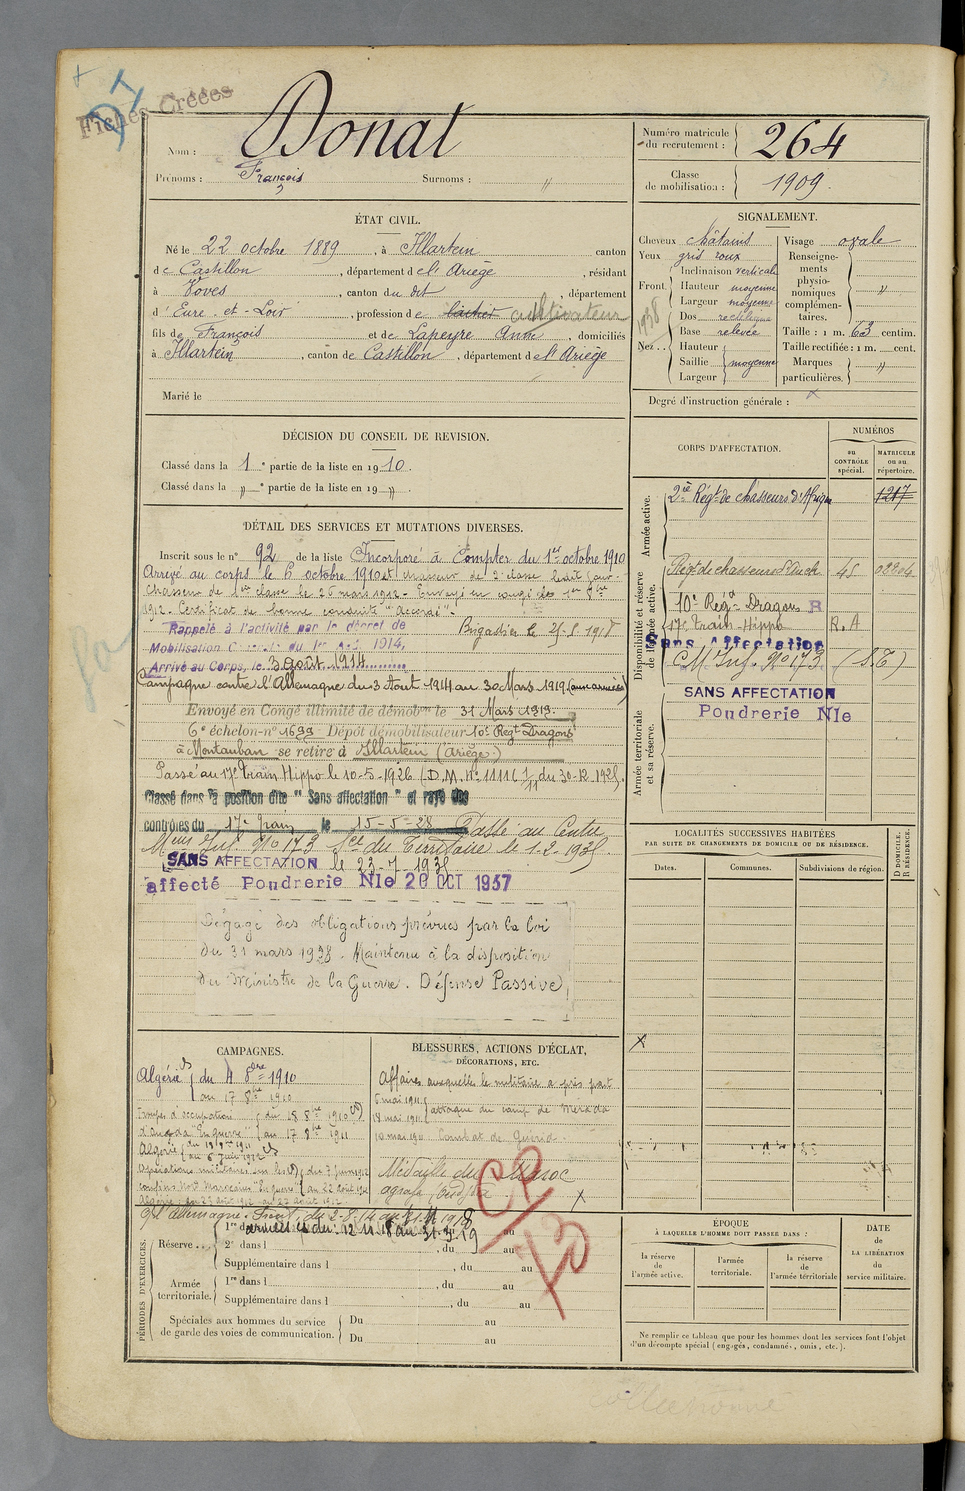 Fiches Créées
Nom : Donat
Prénoms : François Surnoms : "
Numéro matricule du recrutement : 264
Classe de mobilisation : 1909.
ÉTAT CIVIL.
Né le 22 octobre 1889, à Illartein canton
de Castillon, département de l'Ariège, résidant
à Voves, canton du dit, département
d'Eure-et-Loir, profession de laitier cultivateur
fils de François et de Lapeyre Anne, domiciliés
à Illartein, canton de Castillon, département de l'Ariège
Marié le
SIGNALEMENT.
Cheveux châtains
Yeux gris roux
Front. Inclinaison verticale
Hauteur moyenne
Largeur moyenne
Nez... Dos rectiligne
Base relevée
Hauteur
Saillie moyenne
Largeur
1938
Visage ovale
Renseignements physionomiques complémentaires. "
Taille : 1 m. 63 centim.
Taille rectifiée : 1 m. cent.
Marques particulières. "
Degré d'instruction générale :
DÉCISION DU CONSEIL DE REVISION.
Classé dans la 1e partie de la liste en 1910.
Classé dans la " e partie de la liste en 19 "
DÉTAIL DES SERVICES ET MUTATIONS DIVERSES.
Inscrit sous le n° 92 de la liste Incorporé à compter du 1er octobre 1910
Arrivé au corps le 6 octobre 1910 et chasseur de 2e classe ledit jour.
Chasseur de 1ère classe le 26 mars 1912. Envoyé en congé le 1er 8bre
1912. Certificat de bonne conduite "accordé".
Rappelé à l'activité par le décret de Brigadier le
Mobilisation Générale du 1er Août 1914,
Arrivé au Corps, le 3 août 1914
Campagne contre l'Allemagne du 3 Août 1914 au 30 Mars 1919 (aux armées)
Envoyé en Congé illimité de démobon le 31 Mars 1919.
6e échelon-n° 1699 Dépôt démobilisateur 10e Regt Dragons
à Montauban se retire à Illartein (Ariège)
Passé au 17e Train Hippo le 10-5-1926 (D.M. n° 11116 1/11 du 30-12-1925.
Classé dans la position dite "Sans affectation" et rayé des
contrôles du 17e Train le 15-5-28 Passé au Centre
Mens Inf. N° 173 Sct du Territoire le 1-2-1935.
SANS AFFECTATION le 23-7-1935
affecté Poudrerie Nle 20 OCT 1937
Dégagé des obligations prévues par la loi
du 31 mars 1928. Maintenu à la disposition
du Ministre de la Guerre. Défense Passive
CORPS D'AFFECTATION.
NUMÉROS
au CONTRÔLE spécial.
MATRICULE ou au répertoire.
Armée active.
2ie Régt de chasseurs d'Afrique 1217
Disponibilité et réserve de l'armée active.
Régt de chasseurs d'Auch 45 02204
10e Régt Dragons R
17e Train Hippo R.A
Sans Affectation
C M Inf. N° 173 (S.T)
Armée territoriale et sa réserve.
SANS AFFECTATION
Poudrerie Nle
LOCALITÉS SUCCESSIVES HABITÉES
PAR SUITE DE CHANGEMENTS DE DOMICILE OU DE RÉSIDENCE.
Dates. Communes. Subdivisions de région.
D DOMICILE.
R RÉSIDENCE.
CAMPAGNES.
Algérie du 4 8bre 1910
au 17 8bre 1910
Troupes d'occupation du 18 8bre 1910
d'Oudjda "En guerre" au 17 8bre 1911
Algérie
Opérations militaires sur les du 7 juin 1912
confins Nord Marocains "En guerre" au 22 août 1912
Algérie : du 23 août 1912 au 27 août 1912
c/ l'Allemagne : Front, du 2-8-14 au 11-11-1918
armées du 12.11.18 au 31.3.19
BLESSURES, ACTIONS D'ÉCLAT,
DÉCORATIONS, ETC.
Affaires auxquelles le militaire a pris part
6 mai 1911
18 mai 1911 attaque du camp de Merada
Combat de
Médaille du Maroc
agrafe Oudjda
CP
PÉRIODES D'EXERCICES.
Réserve... 1re dans l
2e dans l , du au
Supplémentaire dans l , du au
Armée territoriale. 1re dans l , du au
Supplémentaire dans l , du au
Spéciales aux hommes du service de garde des voies de communication. Du au
Du au
ÉPOQUE
À LAQUELLE L'HOMME DOIT PASSER DANS :
la réserve de l'armée active.
l'armée territoriale.
la réserve de l'armée térritoriale
DATE de LA LIBÉRATION du service militaire.
Ne remplir ce tableau que pour les hommes dont les services font l'objet
d'un décompte spécial (engagés, condamnés, omis, etc.).